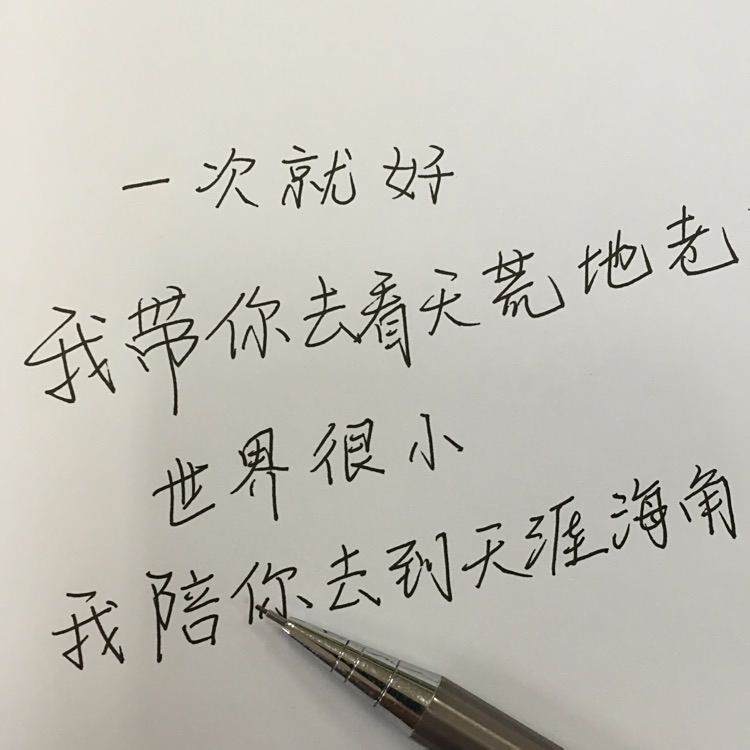 一次就好
我带你去看天荒地老
世界很小
我陪你去到天涯海角